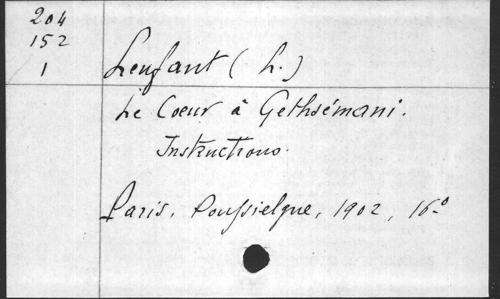 204
152
1
Lenfant (L.)
Le Coeur à Gethsémani.
Instructions.
Paris, Poussielgue, 1902, 16.º